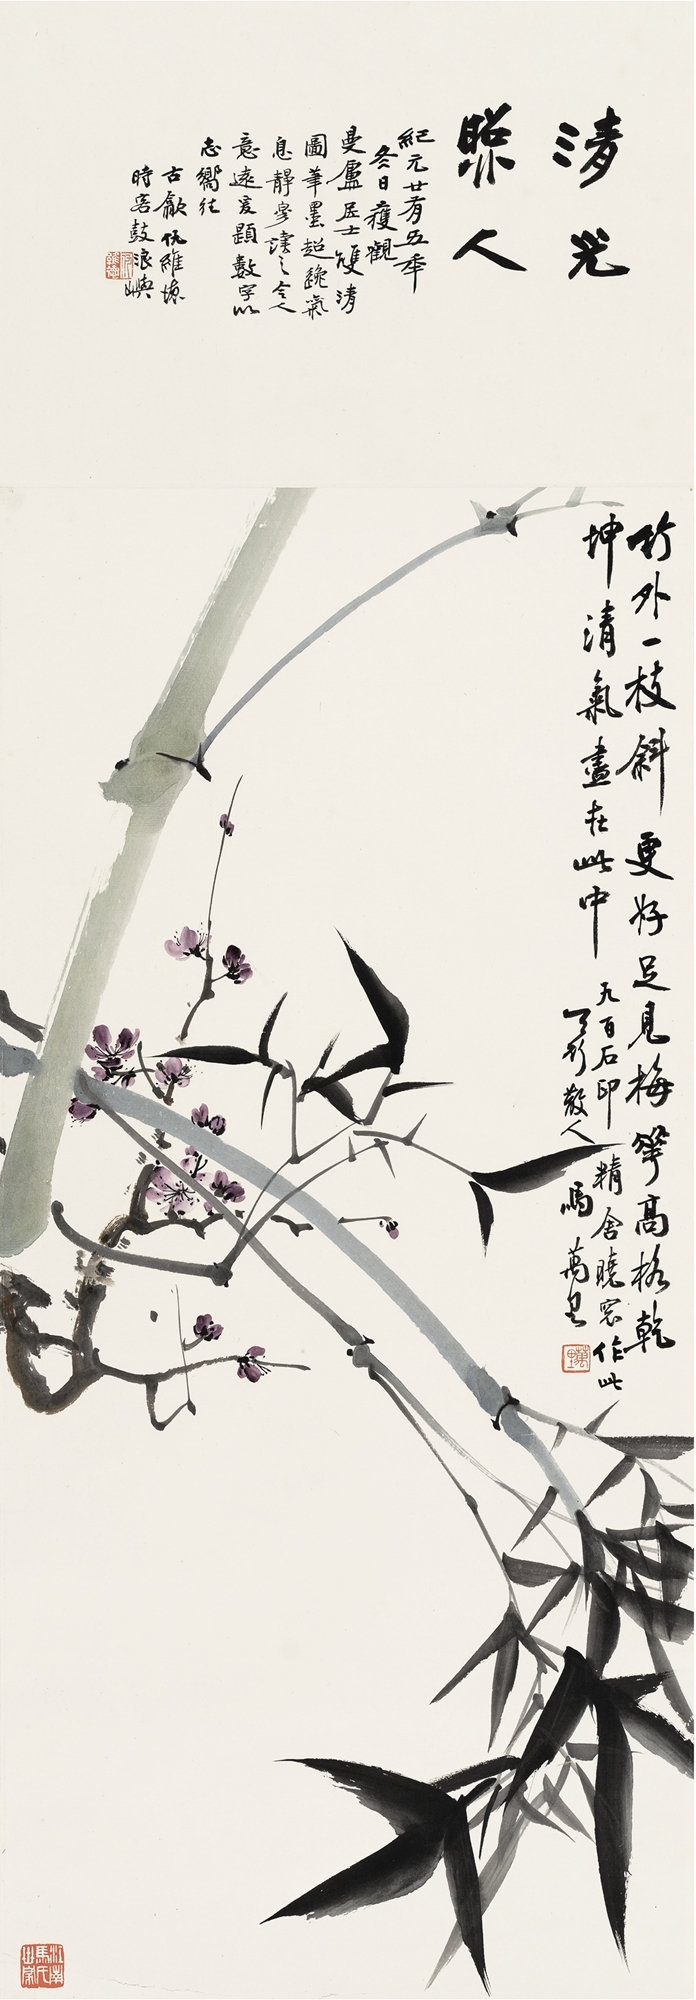 清光
照人
紀元廿有五年
冬日獲觀
曼廬居士雙清
圖筆墨超逸氣
息靜穆讀之令人
意遠爰題數字以
志嚮往
古歙仇維
時客鼓浪嶼
竹外一枝斜更好足見梅華高格乾
坤清氣盡在此中
九百石印精舍曉窗作此
天影散人馬萬里
萬里
江南
馬氏